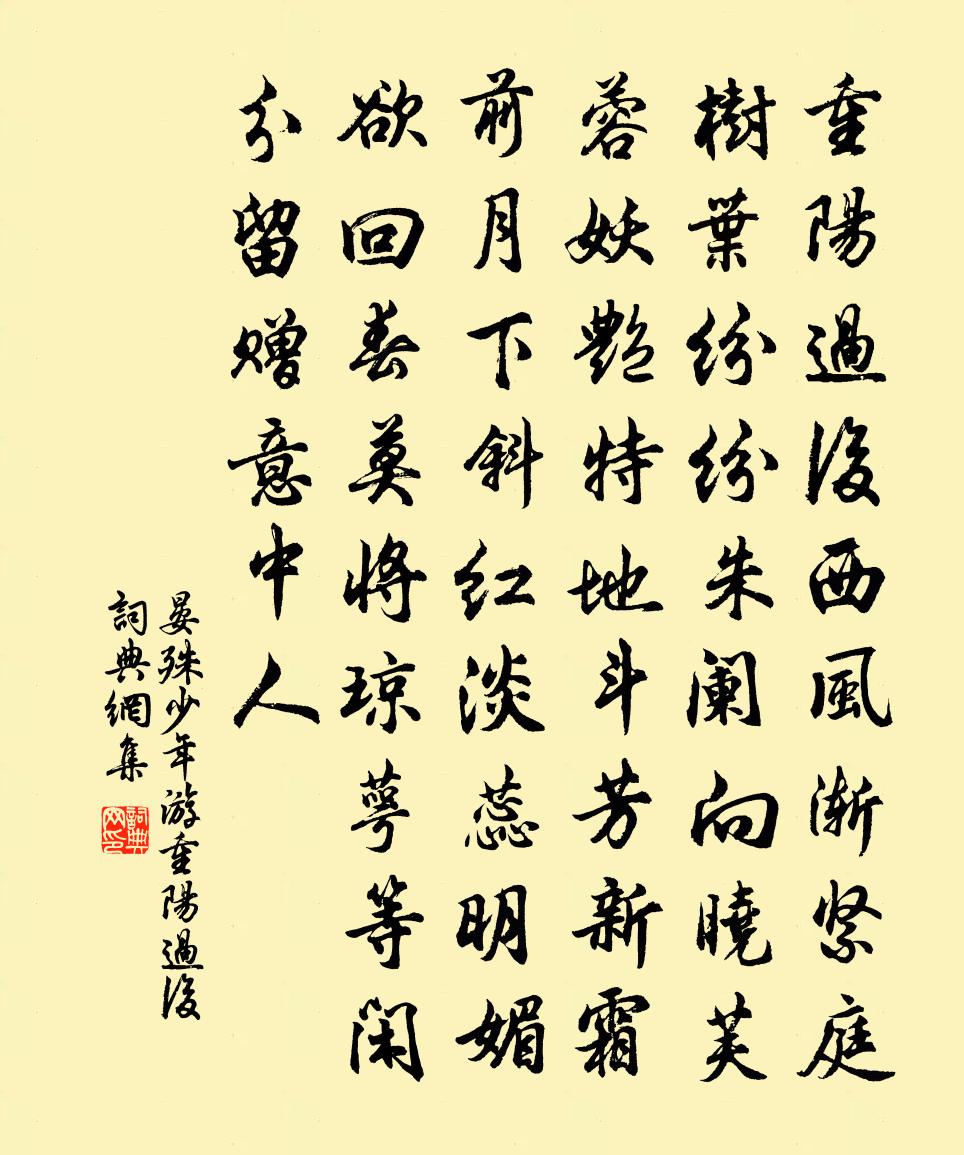 重陽過後西風漸紧庭
樹葉紛紛朱闌向曉芙
蓉妖艷特地斗芳新霜
前月下斜红淡蕊明媚
欲回春莫將琼萼等闲
分留贈意中人
晏殊少年游重陽過後
詞典網集
詞典网印